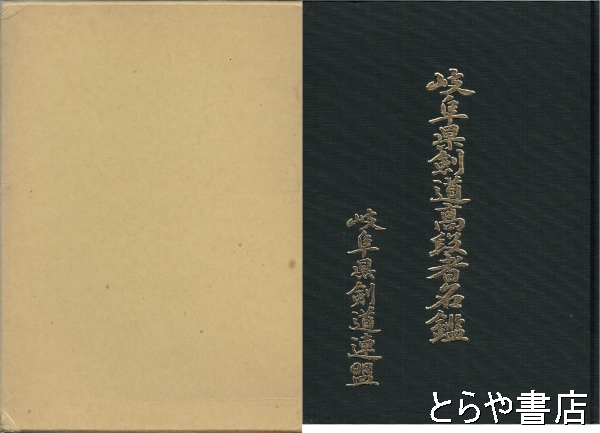 岐阜県剣道高段者名鑑
岐阜県剣道連盟
とらや書店